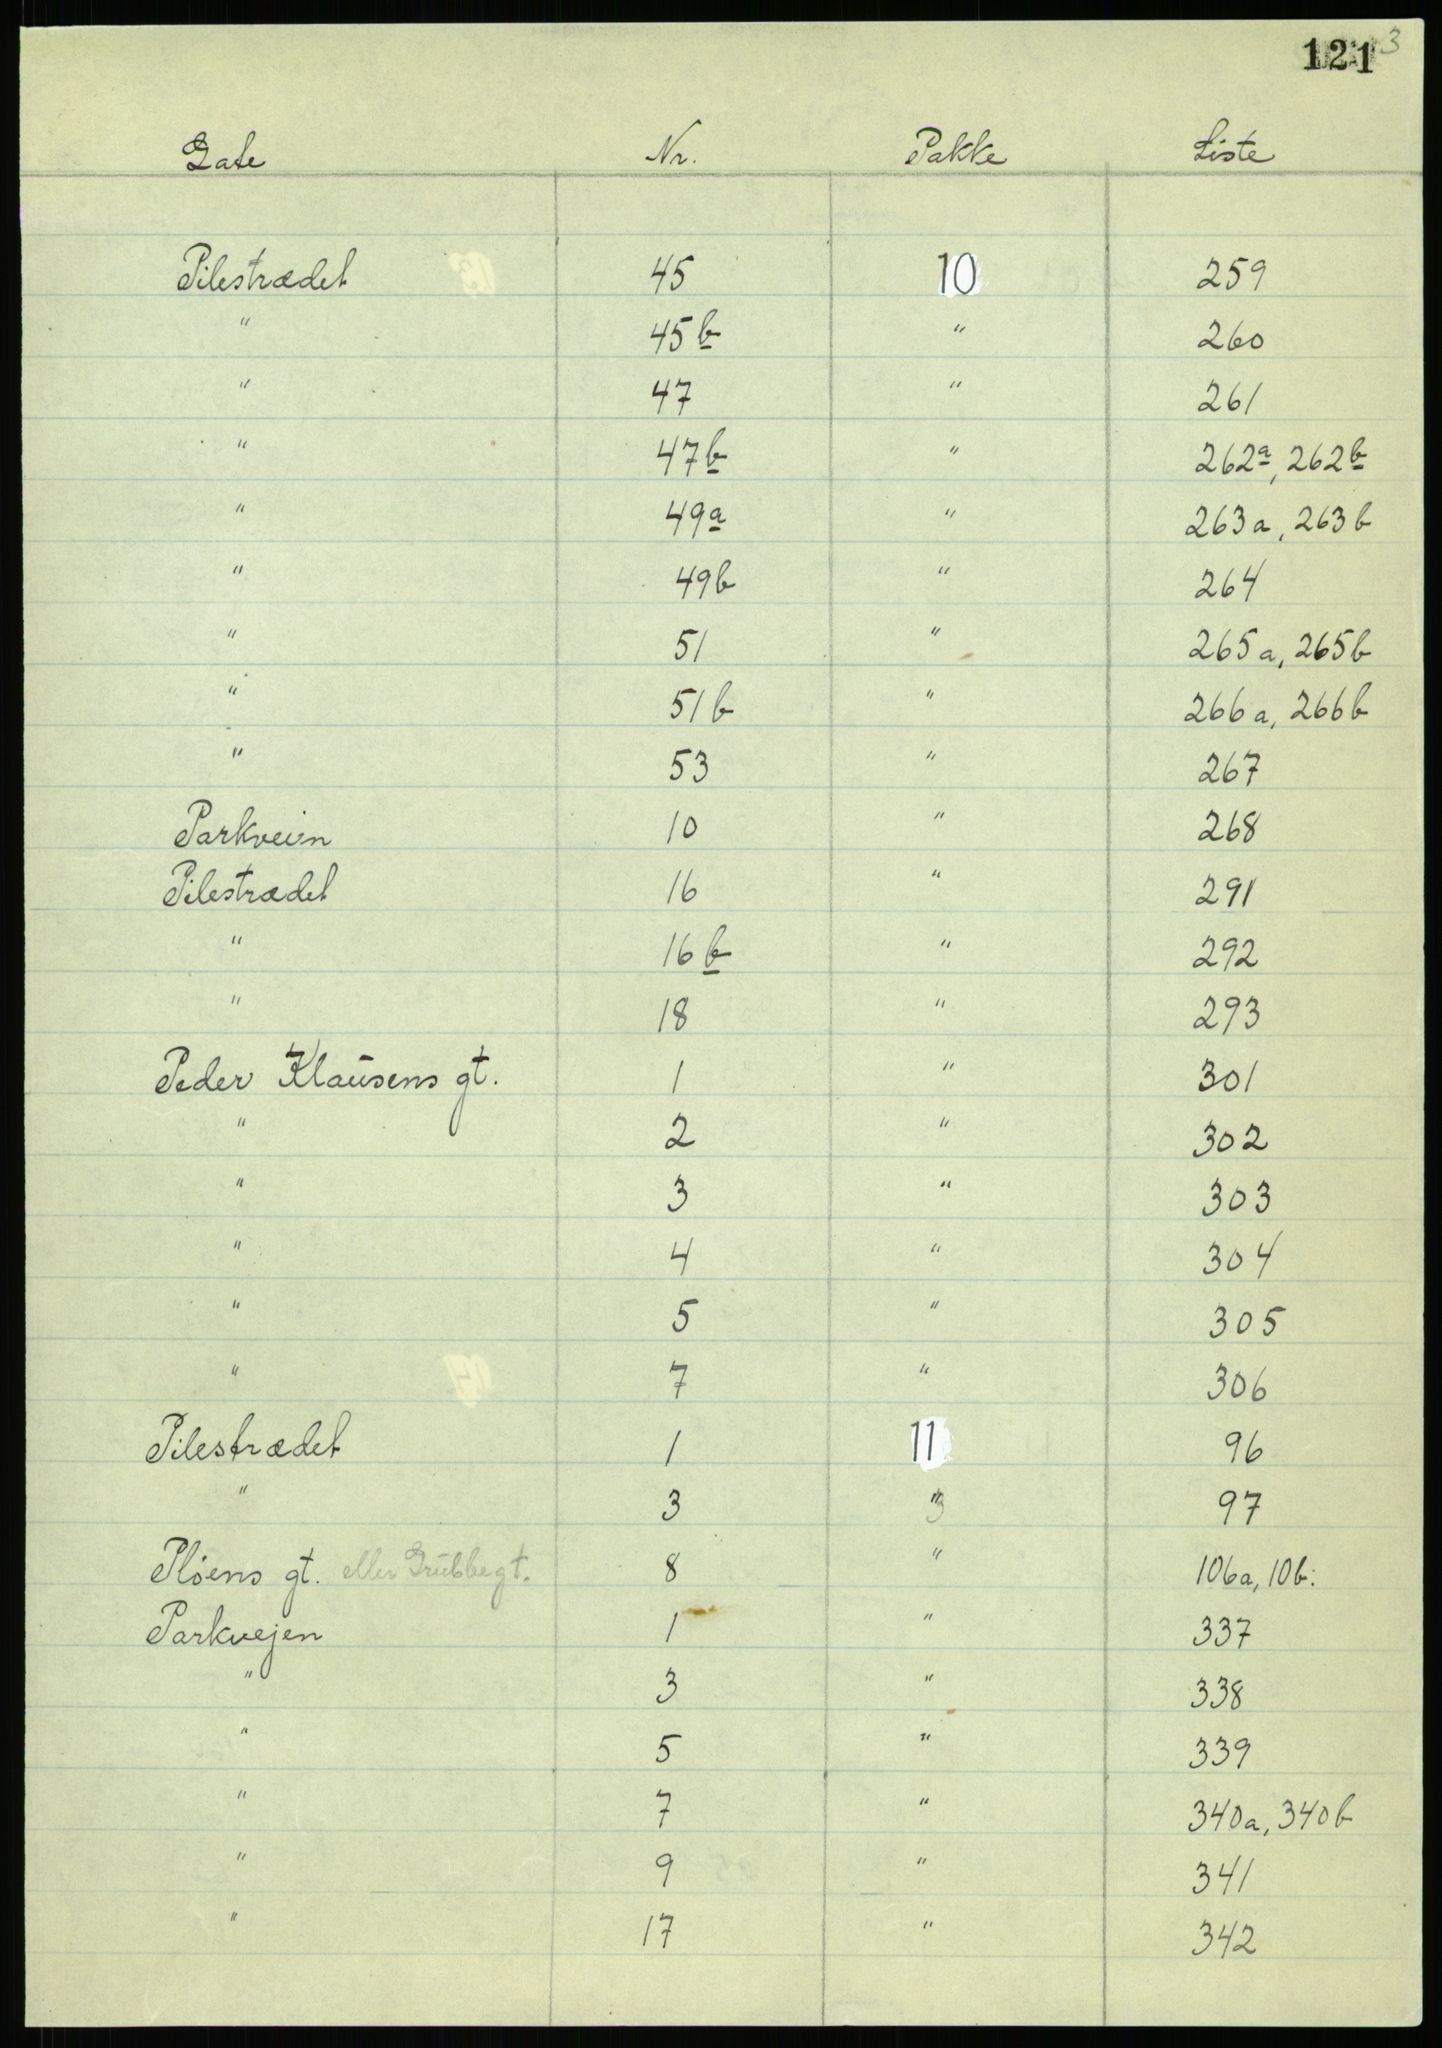 121 3
Gate Nr. Pakke Liste
Pilestrædet 45 10 259
" 45b " 260
" 47 " 261
" 47b " 262a, 262b
" 49a " 263a, 263b
" 49b " 264
" 51 " 265a, 265b
" 51b " 266a, 266b
" 53 " 267
Parkveien 10 " 268
Pilestrædet 16 " 291
" 16b " 292
" 18 " 293
Peder Klausens gt. 1 " 301
" 2 " 302
" 3 " 303
" 4 " 304
" 5 " 305
" 7 " 306
Pilestrædet 1 11 96
" 3 " 97
Pløens gt. eller Grubbegt. 8 " 106a, 10b.
Parkvejen 1 " 337
" 3 " 338
" 5 " 339
" 7 " 340a, 340b
" 9 " 341
" 17 " 342